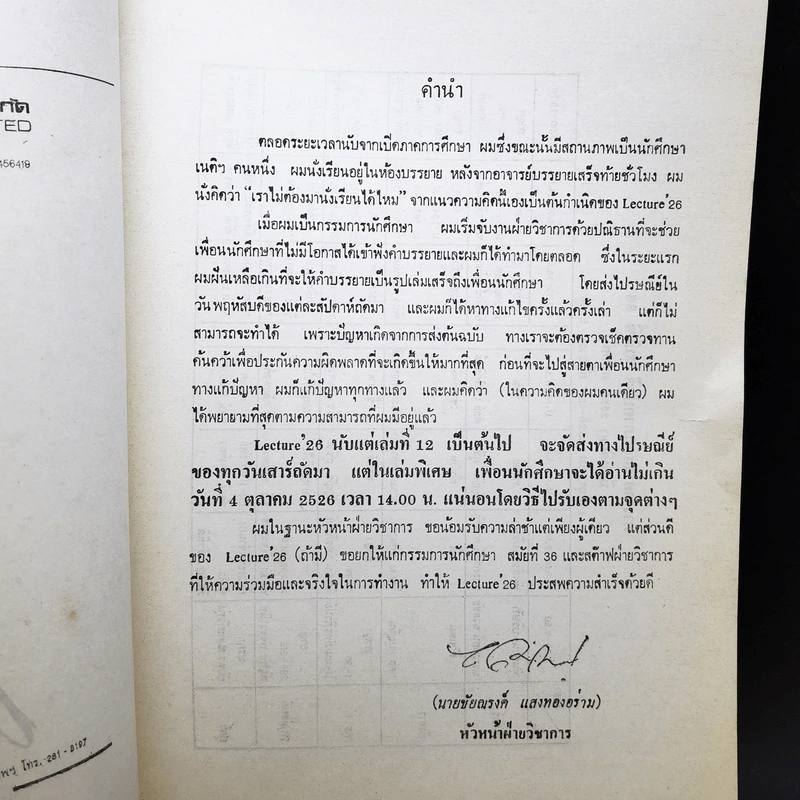 กัด
TED
456419
พฯ โทร. 281 - 8197
คำนำ
ตลอดระยะเวลานับจากเปิดภาคการศึกษา ผมซึ่งขณะนั้นมีสถานภาพเป็นนักศึกษา
เนติฯ คนหนึ่ง ผมนั่งเรียนอยู่ในห้องบรรยาย หลังจากอาจารย์บรรยายเสร็จท้ายชั่วโมง ผม
นั่งคิดว่า "เราไม่ต้องมานั่งเรียนได้ไหม" จากแนวความคิดนี้เองเป็นต้นกำเนิดของ Lecture'26
เมื่อผมเป็นกรรมการนักศึกษา ผมเริ่มจับงานฝ่ายวิชาการด้วยปณิธานที่จะช่วย
เพื่อนนักศึกษาที่ไม่มีโอกาสได้เข้าฟังคำบรรยายและผมก็ได้ทำมาโดยตลอด ซึ่งในระยะแรก
ผมฝันเหลือเกินที่จะให้คำบรรยายเป็นรูปเล่มเสร็จถึงเพื่อนนักศึกษา โดยส่งไปรษณีย์ใน
วันพฤหัสบดีของแต่ละสัปดาห์ถัดมา และผมก็ได้หาทางแก้ไขครั้งแล้วครั้งเล่า แต่ก็ไม่
สามารถจะทำได้ เพราะปัญหาเกิดจากการส่งต้นฉบับ ทางเราจะต้องตรวจเช็คตรวจทาน
ค้นคว้าเพื่อประกันความผิดพลาดที่จะเกิดขึ้นให้มากที่สุด ก่อนที่จะไปสู่สายตาเพื่อนนักศึกษา
ทางแก้ปัญหา ผมก็แก้ปัญหาทุกทางแล้ว และผมคิดว่า (ในความคิดของผมคนเดียว) ผม
ได้พยายามที่สุดตามความสามารถที่ผมมีอยู่แล้ว
Lecture'26 นับแต่เล่มที่ 12 เป็นต้นไป จะจัดส่งทางไปรษณีย์
ของทุกวันเสาร์ถัดมา แต่ในเล่มพิเศษ เพื่อนนักศึกษาจะได้อ่านไม่เกิน
วันที่ 4 ตุลาคม 2526 เวลา 14.00 น. แน่นอนโดยวิธีไปรับเองตามจุดต่างๆ
ผมในฐานะหัวหน้าฝ่ายวิชาการ ขอน้อมรับความล่าช้าแต่เพียงผู้เดียว แต่ส่วนดี
ของ Lecture'26 (ถ้ามี) ขอยกให้แก่กรรมการนักศึกษา สมัยที่ 36 และสต๊าฟฝ่ายวิชาการ
ที่ให้ความร่วมมือและจริงใจในการทำงาน ทำให้ Lecture'26 ประสพความสำเร็จด้วยดี
(นายชัยณรงค์ แสงทองอร่าม)
หัวหน้าฝ่ายวิชาการ